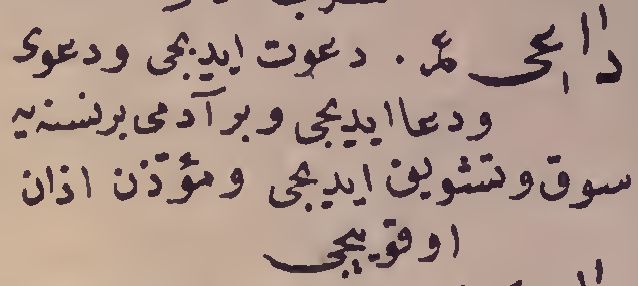 داعى مر. دعوت ایدیجی ودعوى
ودعا ایدیجی وبر آدمی برنسنه یه
سوق وتشویق ایدیجی ومؤذن اذان
اوقویجی